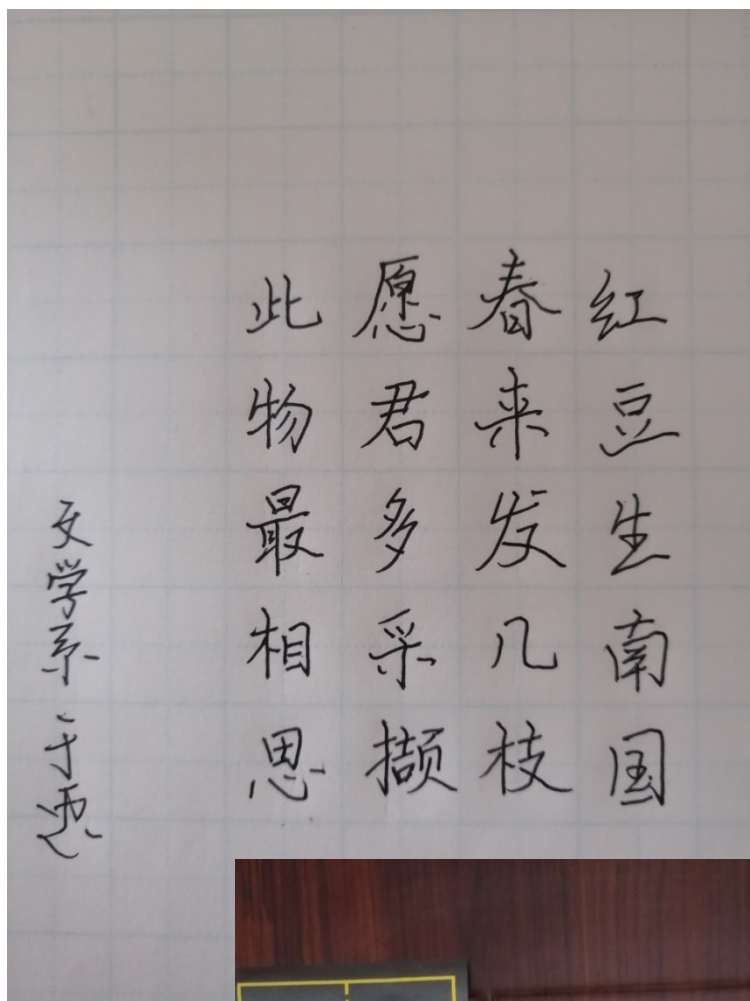 红豆生南国
春来发几枝
愿君多采撷
此物最相思
文学系 于